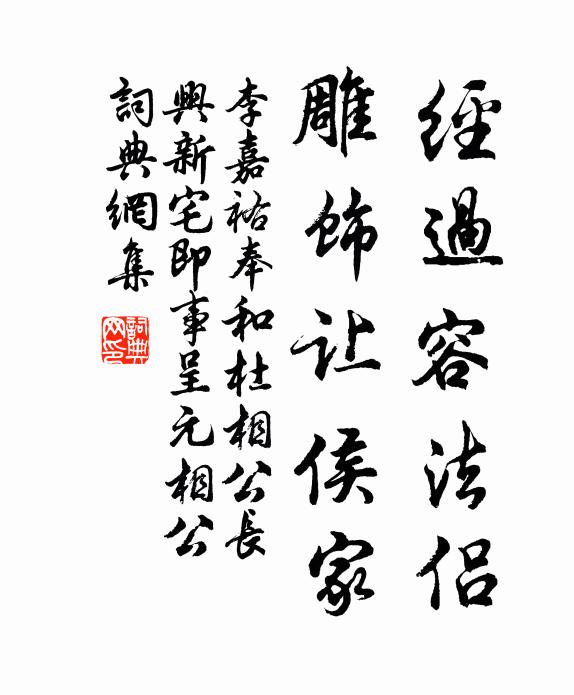 經過容法侶
雕飾让侯家
李嘉祐奉和杜相公長
興新宅即事呈元相公
詞典網集
詞典网印